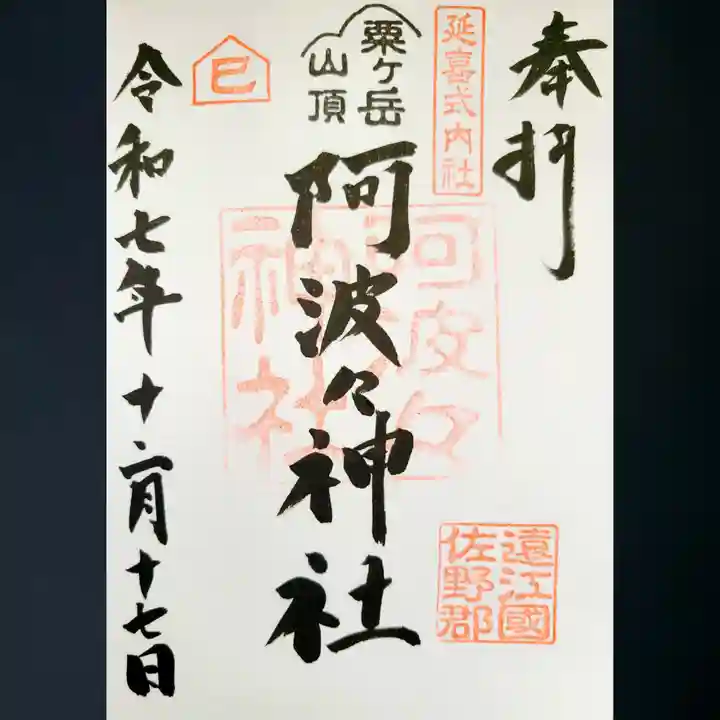 奉拝
延喜式内社
遠江國
佐野郡
粟ヶ岳
山頂
阿波々神社
阿波々
神社
巳
令和七年十二月十七日